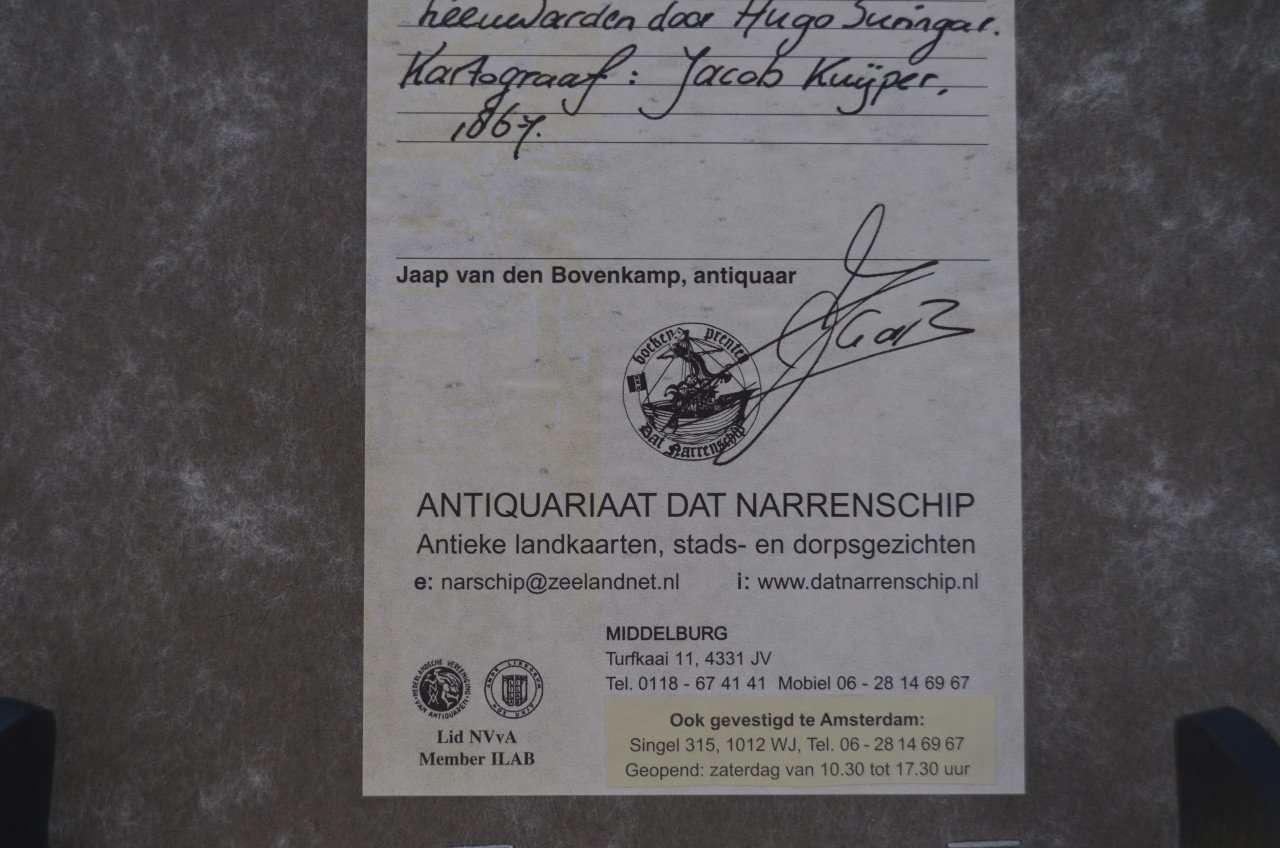 Leeuwarden door Hugo Suringar.
Kartograaf: Jacob Kuÿper,
1867.
Jaap van den Bovenkamp, antiquaar
boeken prenten
Dat Narrenschip
ANTIQUARIAAT DAT NARRENSCHIP
Antieke landkaarten, stads- en dorpsgezichten
e: narschip@zeelandnet.nl i: www.datnarrenschip.nl
MIDDELBURG
Turfkaai 11, 4331 JV
Tel. 0118 - 67 41 41 Mobiel 06 - 28 14 69 67
NEDERLANDSCHE VEREENIGING
VAN ANTIQUAREN
AMOR LIBRORUM
NOS UNIT
Lid NVvA
Member ILAB
Ook gevestigd te Amsterdam:
Singel 315, 1012 WJ, Tel. 06 - 28 14 69 67
Geopend: zaterdag van 10.30 tot 17.30 uur